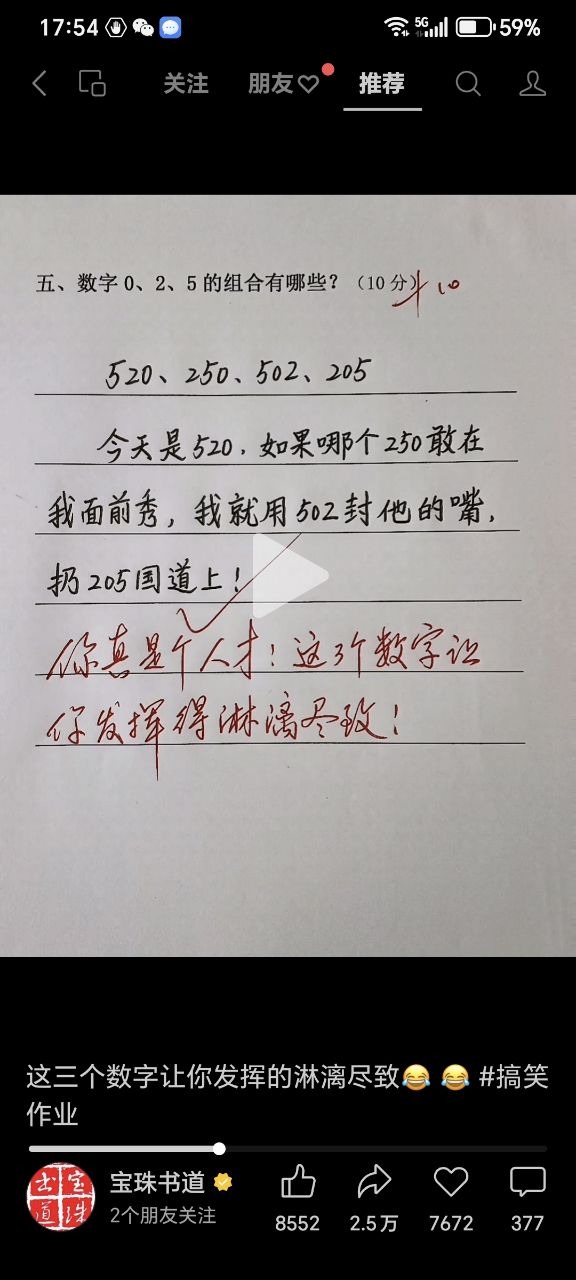 17:54 5G 59%
关注 朋友 推荐
五、数字 0、2、5 的组合有哪些？（10 分）+10
520、250、502、205
今天是520，如果哪个250敢在
我面前秀，我就用502封他的嘴，
扔205国道上！
你真是个人才！这3个数字让
你发挥得淋漓尽致！
这三个数字让你发挥的淋漓尽致😂 😂 #搞笑
作业
书宝道珠
宝珠书道
2个朋友关注
8552 2.5万 7672 377